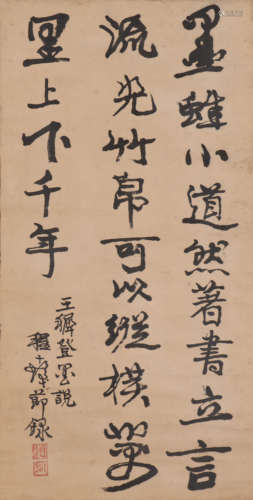 墨雖小道然著書立言
流光竹帛可以縱橫萬
里上下千年
王穉登墨說
節錄